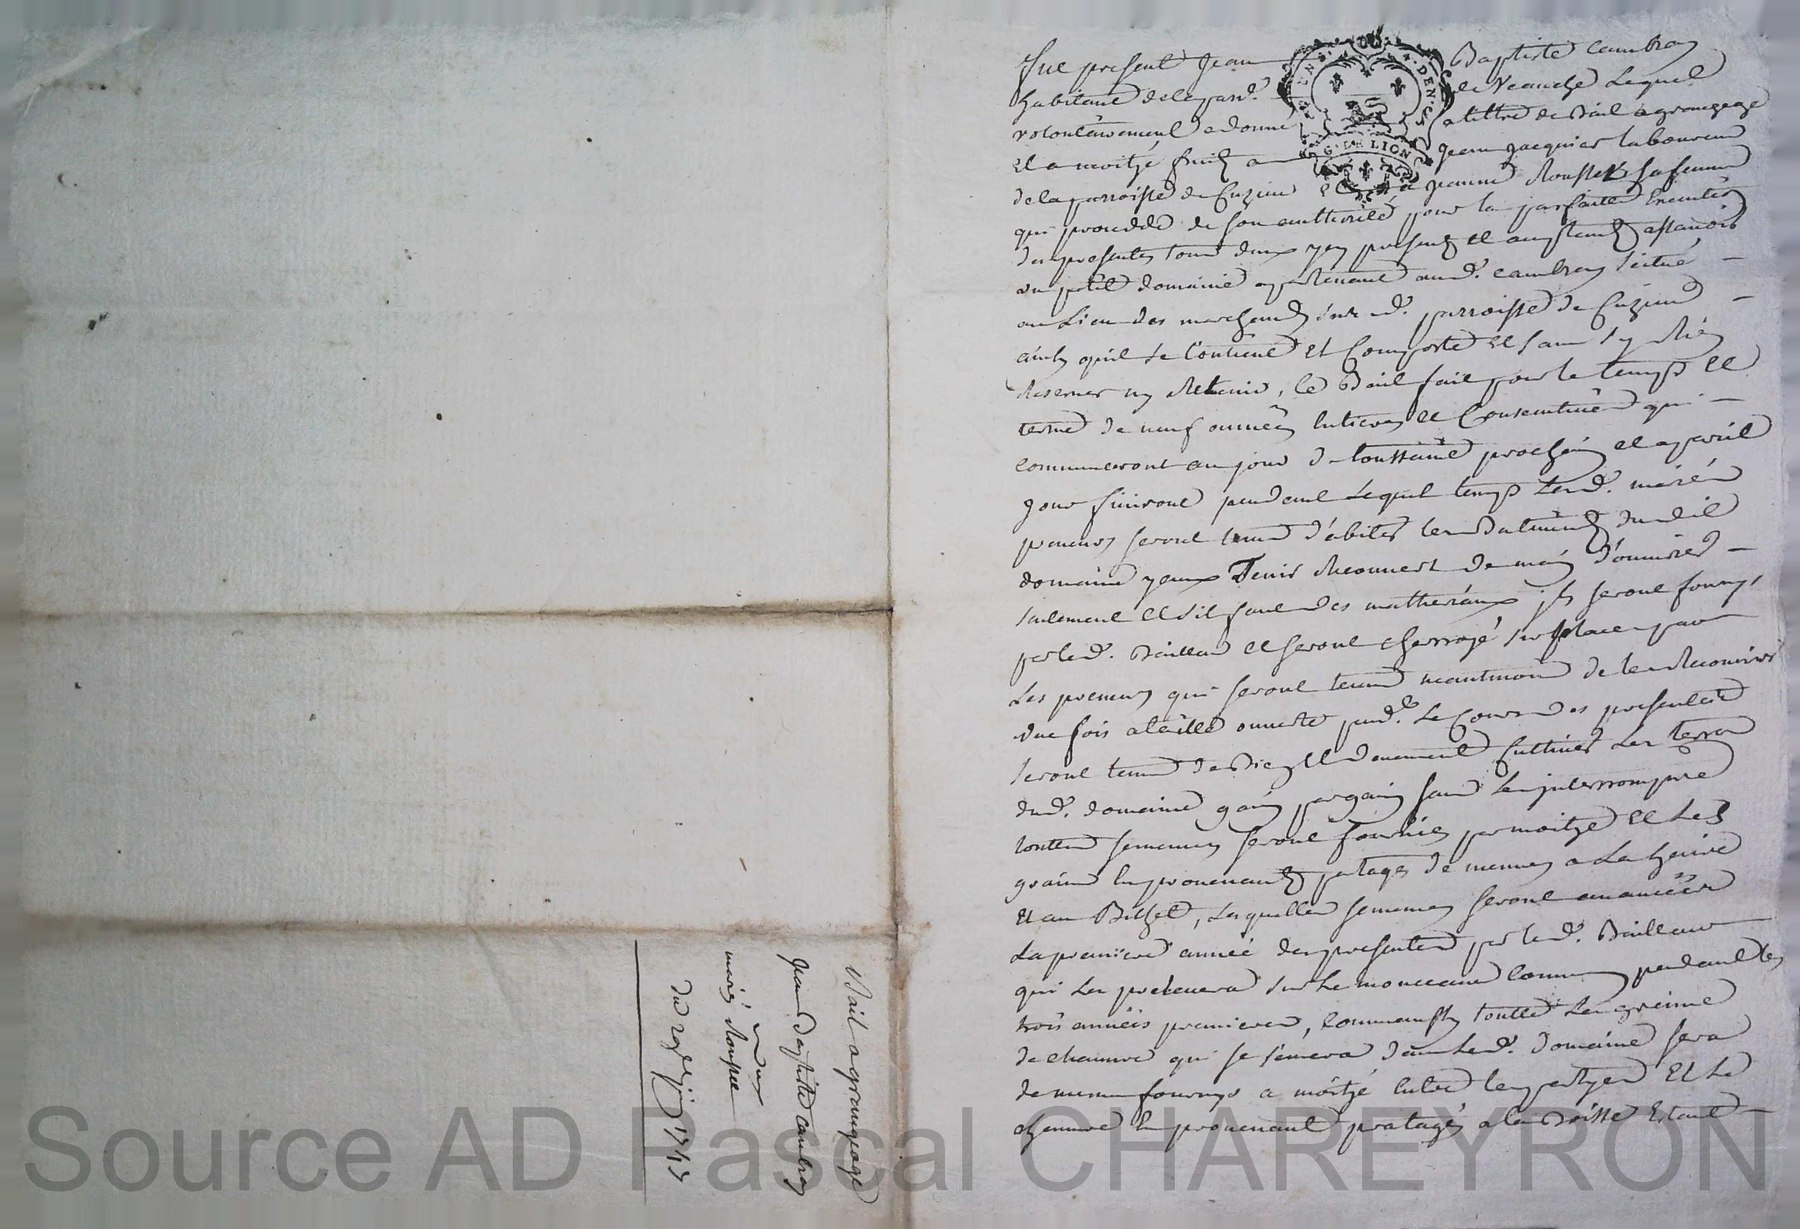 Fut present Jean Baptiste Cambray
habitant de la parr.e de Veauche Lequel
volontairement a donné a tiltre de Bail a grangeage
Et a moitié fruit a Jean Jacquier laboureur
de la parroisse de Cuzieu Et a Jeanne Rousset sa femme
qui procedde de son authorité pour la parfaitte Execution
des presentes tous deux y presents et acceptants assavoir
un petit domaine apartenant aud. Cambray scitué
au Lieu des marchands sur d. parroisse de Cuzieu
ainsy quil se Contient Et Comporte Et sans sy Rien
Reserver ny Retenir, le Bail fait pour le temps et
terme de neuf années Entieres et Consecutives qui
commenceront au jour de toussaint prochain et a pareil
jour finiront pendant Lequel temps Lesd. mariés
preneurs seront tenus d'abiter les Batiments dudit
domaine yceux Tenir Recouvert de main d'ouvrier
seulement et s'il faut des matheriaux jls seront fournys
par led. Bailleur et seront charroyé sur place par
Les preneurs qui seront tenus neantmoins de les Recouvrir
une fois a taille ouverte pend.t Le Cours des presentes
seront tenus de Bien et duement Cultiver Les terres
dud. domaine gain par gain sans Les jnterrompre
touttes semences seront fournies par moitye et Les
grains En provenants partages de mesmes a La
Et au Bichet, Lesquelles semences seront avancées
La premiere année des presentes par led. Bailleur
qui Les prelevera sur Le monceau Commun pendant les
trois années premieres, Comme aussy toutte La graine
de chanvre qui se semera dans Led. domaine sera
de mesme fournye a moitié Entre les partyes Et Le
chanvre En provenant partagé a la Estant
Bail a grangeage
Jean Baptiste Cambray
mariés Rousset
du 1743
Source AD Pascal CHAREYRON